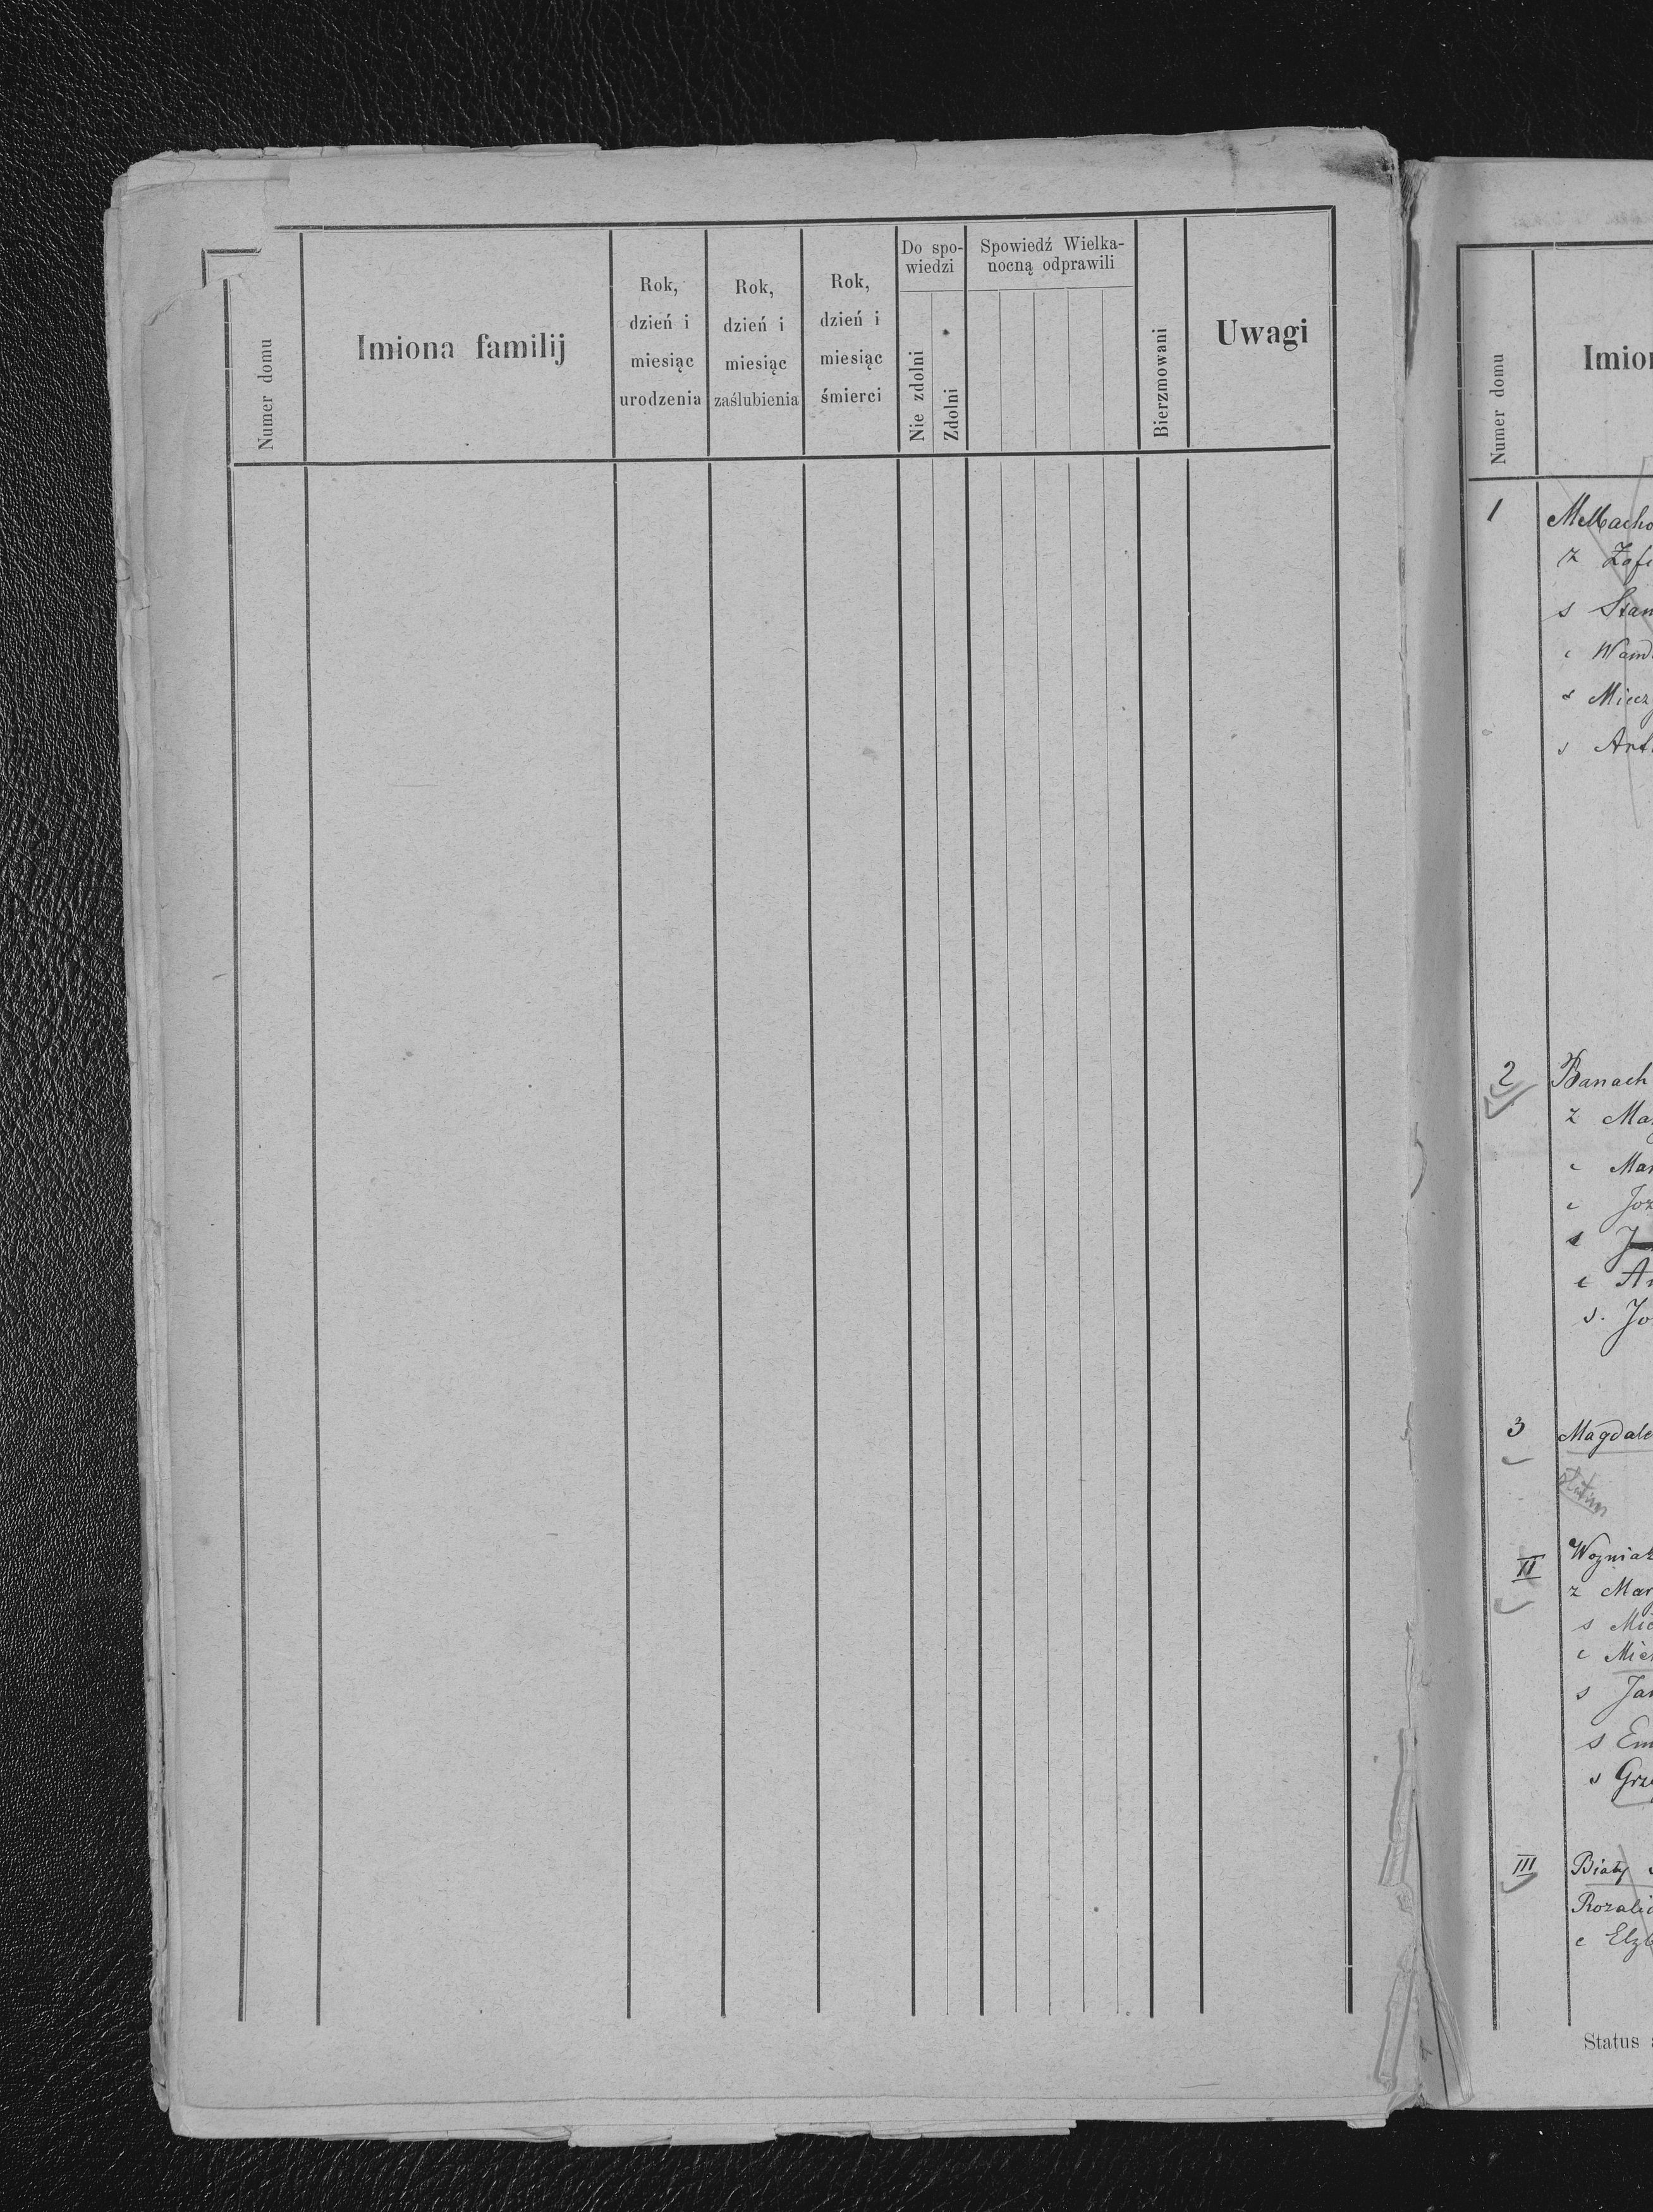 Numer domu
Imiona familij
Rok,
dzień i
miesiąc
urodzenia
Rok,
dzień i
miesiąc
zaślubienia
Rok,
dzień i
miesiąc
śmierci
Do spo-
wiedzi
Nie zdolni
Zdolni
Spowiedź Wielka-
nocną odprawili
Bierzmowani
Uwagi
Numer domu
Imion
1
z Zofi
s Stan
c Wand
s Miecz
s Art
2 Banach
z Mar
c Mar
c Joz
s J
c An
s. Jo
3 Magdale
II Wozniak
z Mar
s Mic
c Mich
s Jan
s Em
s Grze
III Biały
Rozali
c Elzb
Status